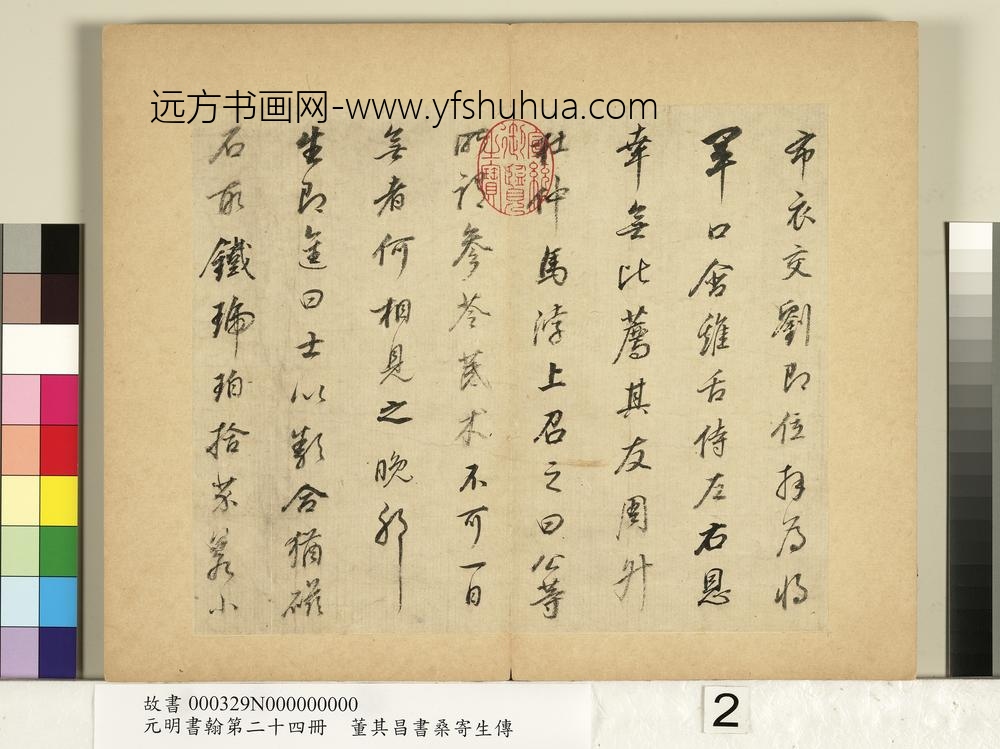 远方书画网-www.yfshuhua.com
布衣交劉即位拜為將
軍口含雞舌侍左右恩
幸無比薦其友周升
杜仲馬浡上召之曰公等
所謂參苓芪朮不可一日
無者何相見之晚耶
生即進曰士以類合猶磁
石取鐵琥珀拾芥若小
故書 000329N000000000
元明書翰第二十四冊 董其昌書桑寄生傳
2